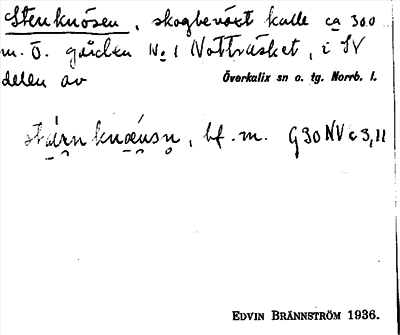 Stenknösen, skogbevöxt kulle ca 300
m. Ö. gården No 1 Notträsket, i SV
delen av Överkalix sn o. tg. Norrb. l.
bf. m. G30 NV c 3, 11
EDVIN BRÄNNSTRÖM 1936.